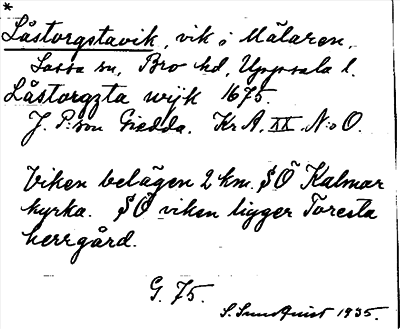 *
Låstorgstavik, vik i Mälaren,
Lossa sn, Bro hd, Uppsala l.
Låstorgzta wijk 1675.
J. P:son Giedda. KrA, XX. N:o O.
Viken belägen 2 km. SÖ Kalmar
kyrka. SÖ viken ligger Toresta
herrgård.
G. 75.
S. Sundquist 1935.